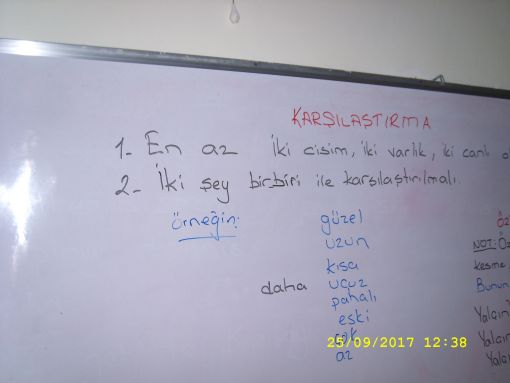 KARŞILAŞTIRMA
1- En az İki cisim, iki varlık, iki canlı
2- İki şey birbiri ile karşılaştırılmalı.
Örneğin: güzel
uzun
kısa
daha ucuz
pahalı
eski
çok
az
NOT:
kesme
Bunun
Yalçın
Yalçın
25/09/2017 12:38